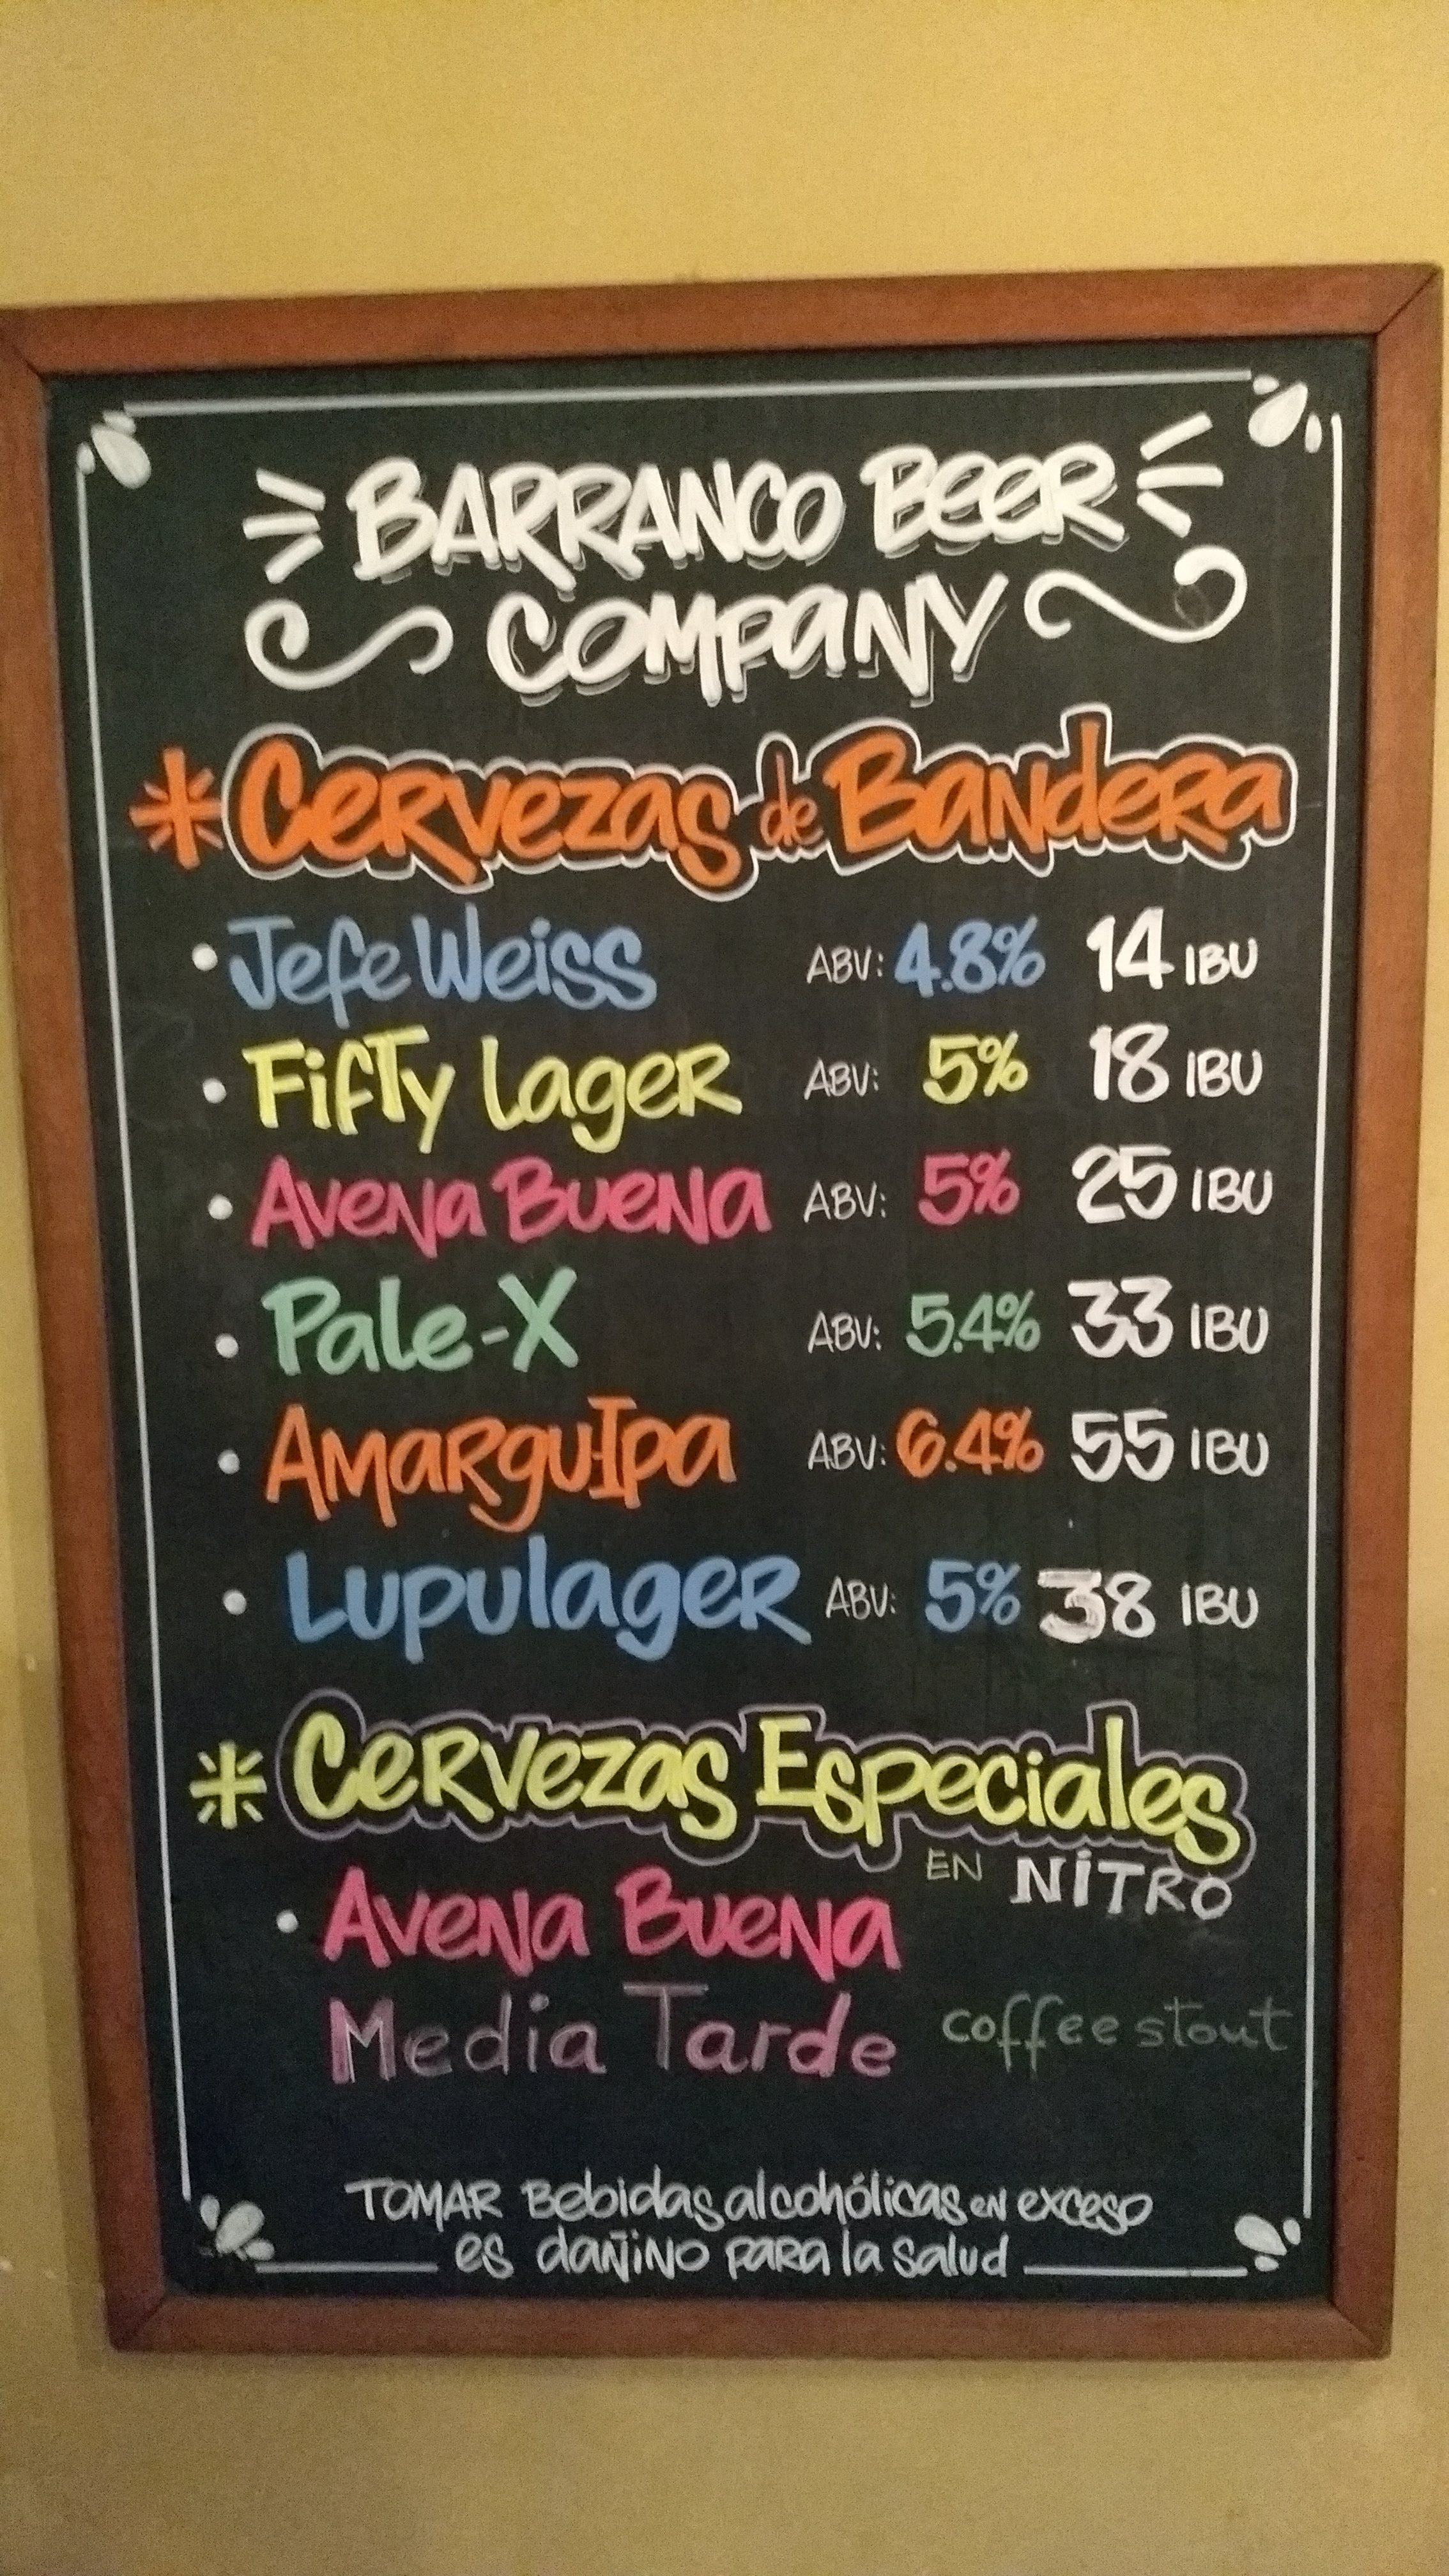 BARRANCO BEER
COMPANY
* Cervezas de Bandera
• Jefe Weiss ABV: 4.8% 14 IBU
• Fifty Lager ABV: 5% 18 IBU
• Avena Buena ABV: 5% 25 IBU
• Pale-X ABV: 5.4% 33 IBU
• AmarguIpa ABV: 6.4% 55 IBU
• Lupulager ABV: 5% 38 IBU
* Cervezas Especiales
EN NITRO
• Avena Buena
Media Tarde coffee stout
TOMAR Bebidas alcohólicas en exceso
es dañino para la salud